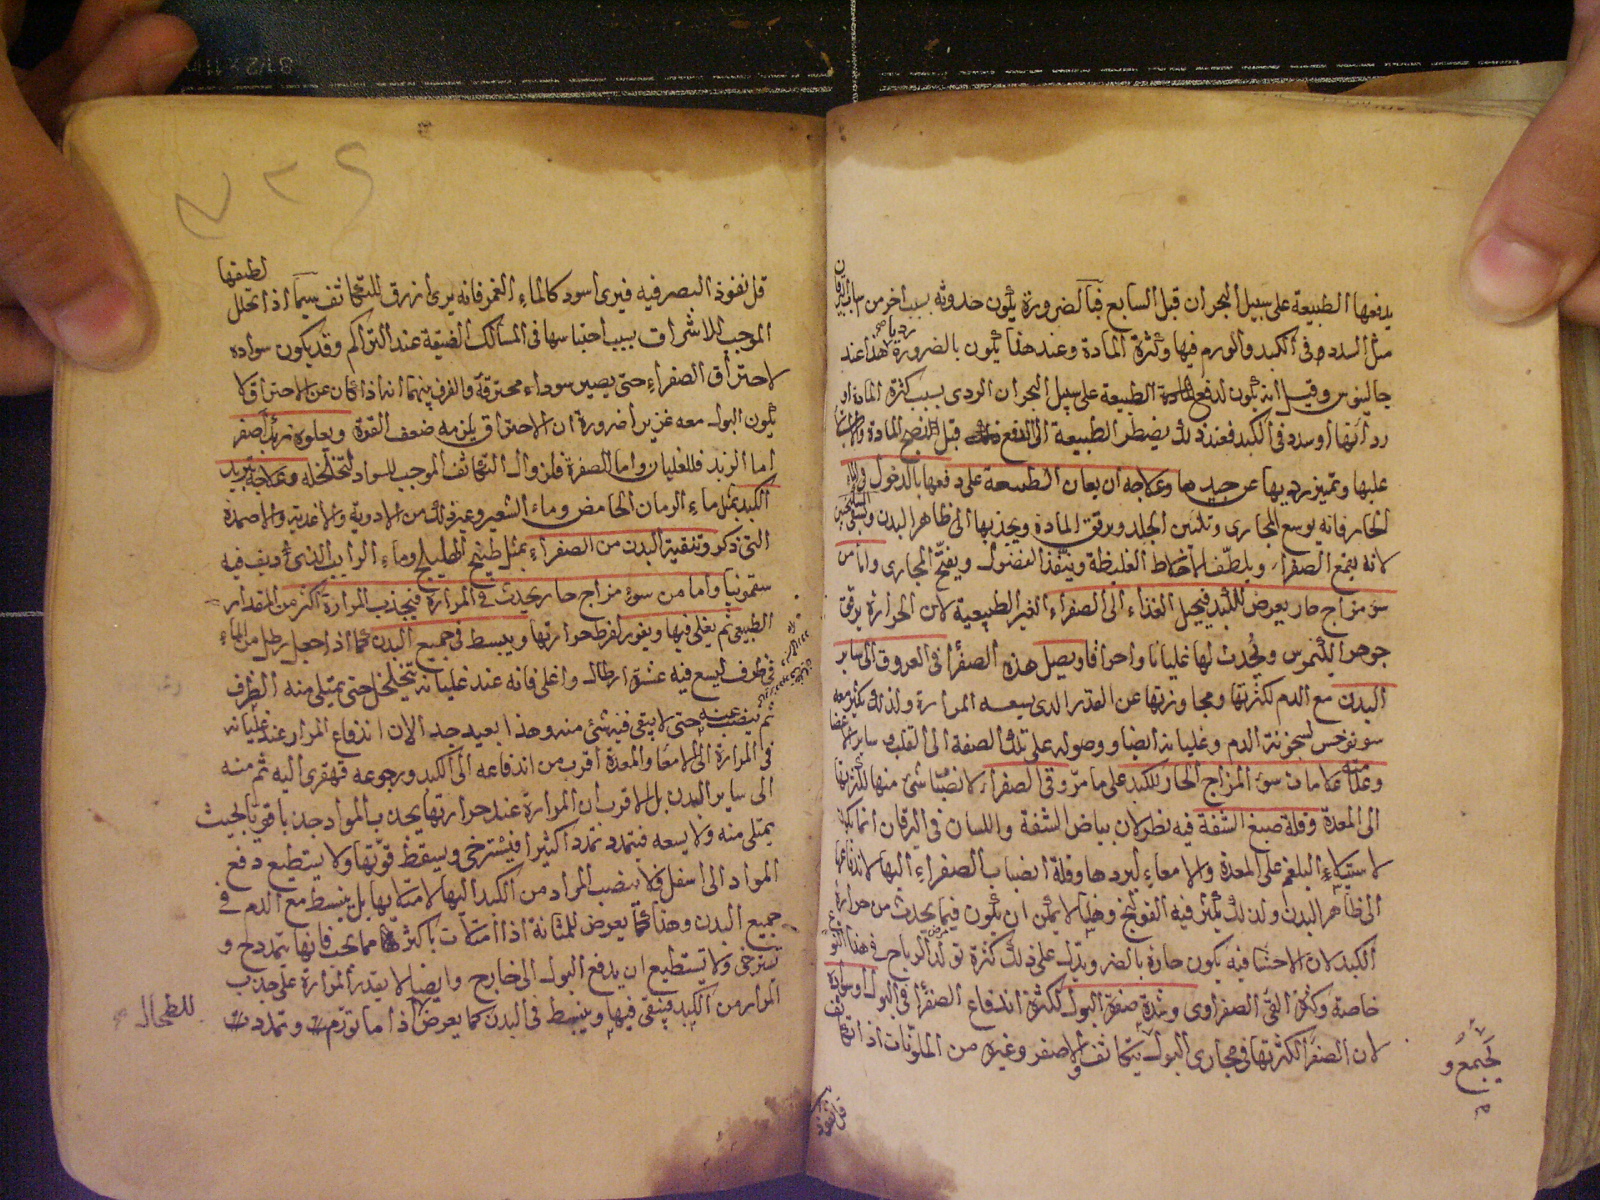 يدفعها الطبيعة على سبيل البحران قبل السابع فبالضرورة يكون حدوثه بسبب اخر من اسباب اليرقان
مثل السدد في الكبد والورم فيها وكثرة المادة وعند هذا يكون بالضرورة رديا هذا عند
جالينوس وقيل انه يكون لدفع الطبيعة على سبيل البحران الردى بسبب كثرة المادة او
ردائتها او سدد في الكبد فعند ذلك يضطر الطبيعة الى الدفع قبل النضج المادة
عليها وتميز رديها عن جيدها وعلاجه ان يعان الطبيعة على دفعها بالدخول في الماء
الحار فانه يوسع المجارى وتلين الجلد ويرقق المادة ويجذبها الى ظاهر البدن
لانه يقمع الصفراء ويلطف الاخلاط الغليظة وينفذ الفضول ويفتح المجارى واما من
سوء مزاج حار يعرض للكبد فيحيل الغذاء الى الصفراء الغير الطبيعية لان الحرارة يرقق
جوهر الكيموس ويحدث لها غليانا واحراقا ويصل هذه الصفراء في العروق الى ساير
البدن مع الدم لكثرتها ومجاوزتها عن القدر الذى يسعه المرارة ولذلك يكثر معه
سونوخس لسخونة الدم وغليانه ايضا ووصوله على تلك الصفة الى القلب وساير الاعضا
وعلامته علامات سوء المزاج الحار للكبد على ما مر وقى الصفراء لانصباب شئ منها لكثرتها
الى المعدة وقلة صبغ الشفة فيه نظر لان بياض الشفة واللسان في اليرقان انما يكون
لاستيلاء البلغم على المعدة والامعاء لبردها وقلة انصباب الصفراء اليها لاندفاعها
الى ظاهر البدن ولذلك يكثر فيه القولنج وههنا لا يمكن ان يكون فيما يحدث من حرارة
الكبد لان الاحشا فيه يكون حارة بالضرورة ويدل على ذلك كثرة تولد الرياح في هذا النوع
خاصة وكثرة القئ الصفراوى وشدة صفرة البول لكثرة اندفاع الصفرا في البول او سواده
لان الصفرا لكثرتها في مجارى البول يتكاثف والاصفر وغيره من الملونات اذا تكاثف
يجتمع و
قل نفوذ
قل نفوذ البصر فيه فيرى اسود كالماء الغمر فانه يرى ازرق للتكاثف سيما اذا تحلل لطيفها
الموجب للاشراق بسبب احتباسها في المسالك الضيقة عند التراكم وقد يكون سواده
لاحتراق الصفراء حتى يصير سوداء محترقة والفرق بينهما انه اذا كان عن الاحتراق لا
يكون البول معه غزيرا ضرورة ان الاحتراق يلزمه ضعف القوة ويعلوه زبد اصفر
اما الزبد فللغليان واما الصفرة فلزوال التكاثف الموجب للسواد لتخلخله وعلاجه تبريد
الكبد بمثل ماء الرمان الحامض وماء الشعير وغير ذلك من الادوية والاغذية والاضمدة
التى ذكر وتنقية البدن من الصفراء بمثل طبيخ الهليلج وماء الرايب الذى اديف فيه
سقمونيا واما من سوء مزاج حار يحدث في المرارة فيجذب المرارة اكثر من المقدار
الطبيعى ثم يغلى فيها ويفور لفرط حرارتها وينبسط في جميع البدن كما اذا جعل رطل من الماء
في ظرف يسع فيه عشرة ارطال واغلى فانه عند غليانه يتخلخل حتى يمتلى منه الظرف
ثم ينصب عنه حتى لا يبقى فيه شئ منه وهذا بعيد جدا لان اندفاع المرار عند غليانه
في المرارة الى الامعا والمعدة اقرب من اندفاعه الى الكبد ورجوعه قهقرى اليه ثم منه
الى ساير البدن بل الاقرب ان المرارة عند حرارتها يجذب المواد جذبا قويا بحيث
يمتلى منه ولا يسعه فيتمدد تمددا كثيرا فيسترخى ويسقط قوتها ولا يستطيع دفع
المواد الى اسفل فلا ينصب المراد من الكبد اليها لامتلائها بل ينبسط مع الدم في
جميع البدن وهذا كما يعرض للمثانة اذا امتلات باكثر مما يجب فانها تتمدد و
تسترخى ولا تستطيع ان يدفع البول الى خارج وايضا لا يقدر المرارة على جذب
المرار من الكبد فيبقى فيها وينبسط في البدن كما يعرض اذا ما تورمت وتمددت
للطحال